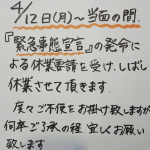 4/12日(月)〜当面の間.
『緊急事態宣言』の発令に
よる休業要請を受け、しばし
休業させて頂きます.
度々ご不便をお掛け致しますが
何卒ご了承の程 宜しくお願い
致します